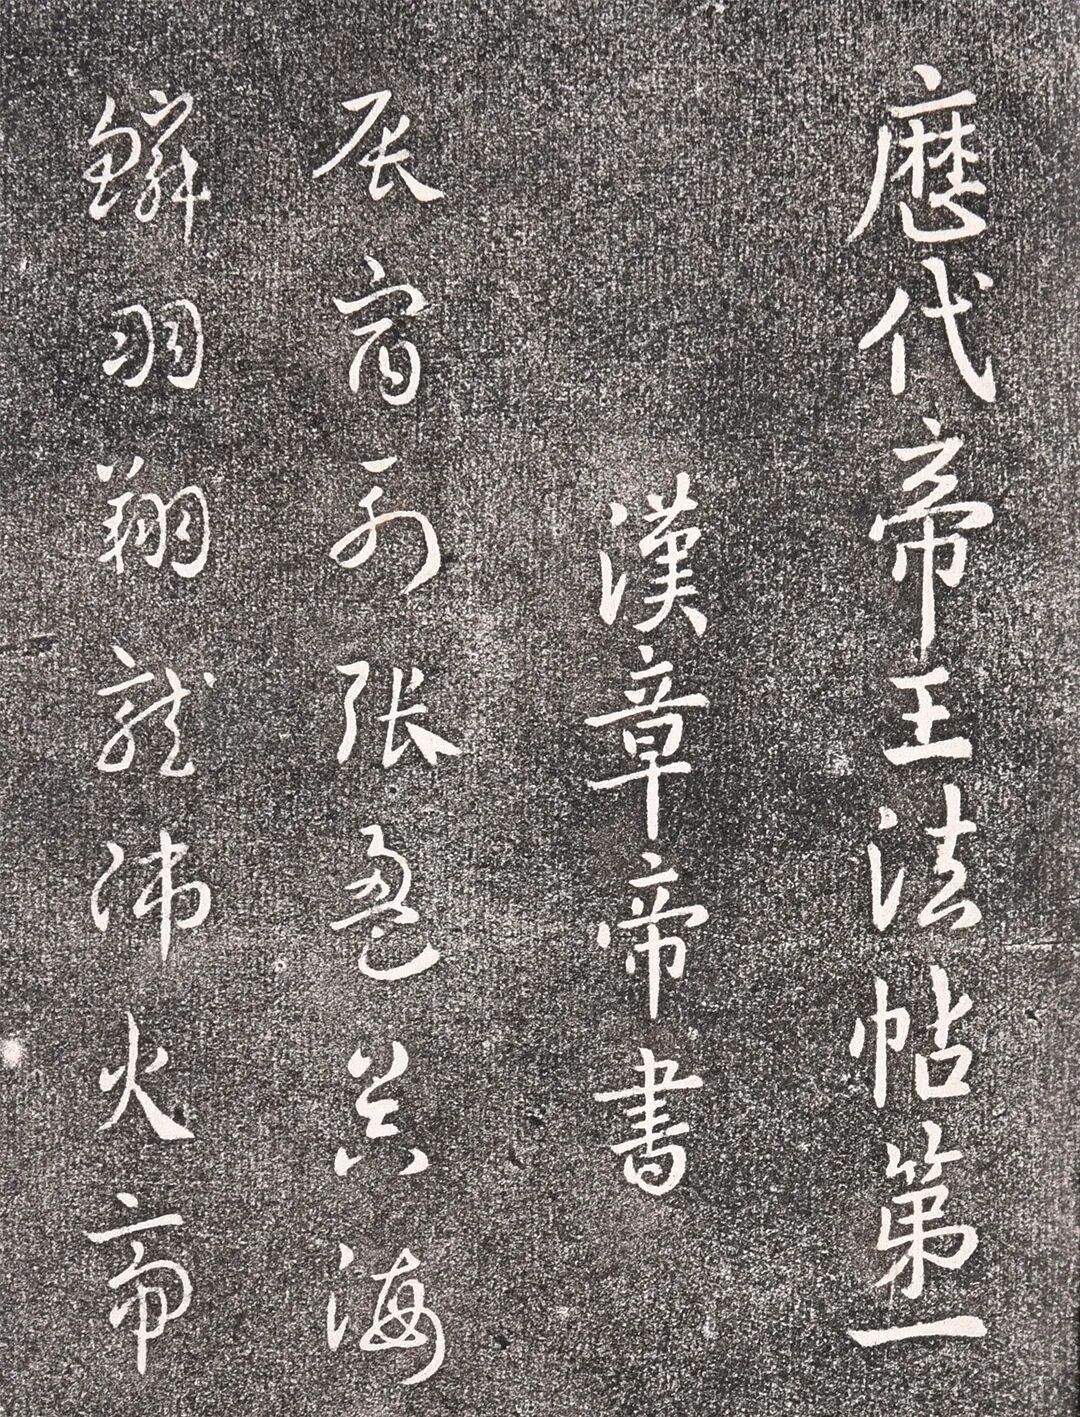 歷代帝王法帖第一
漢章帝書
辰宿列張海
鱗羽翔龍師火帝